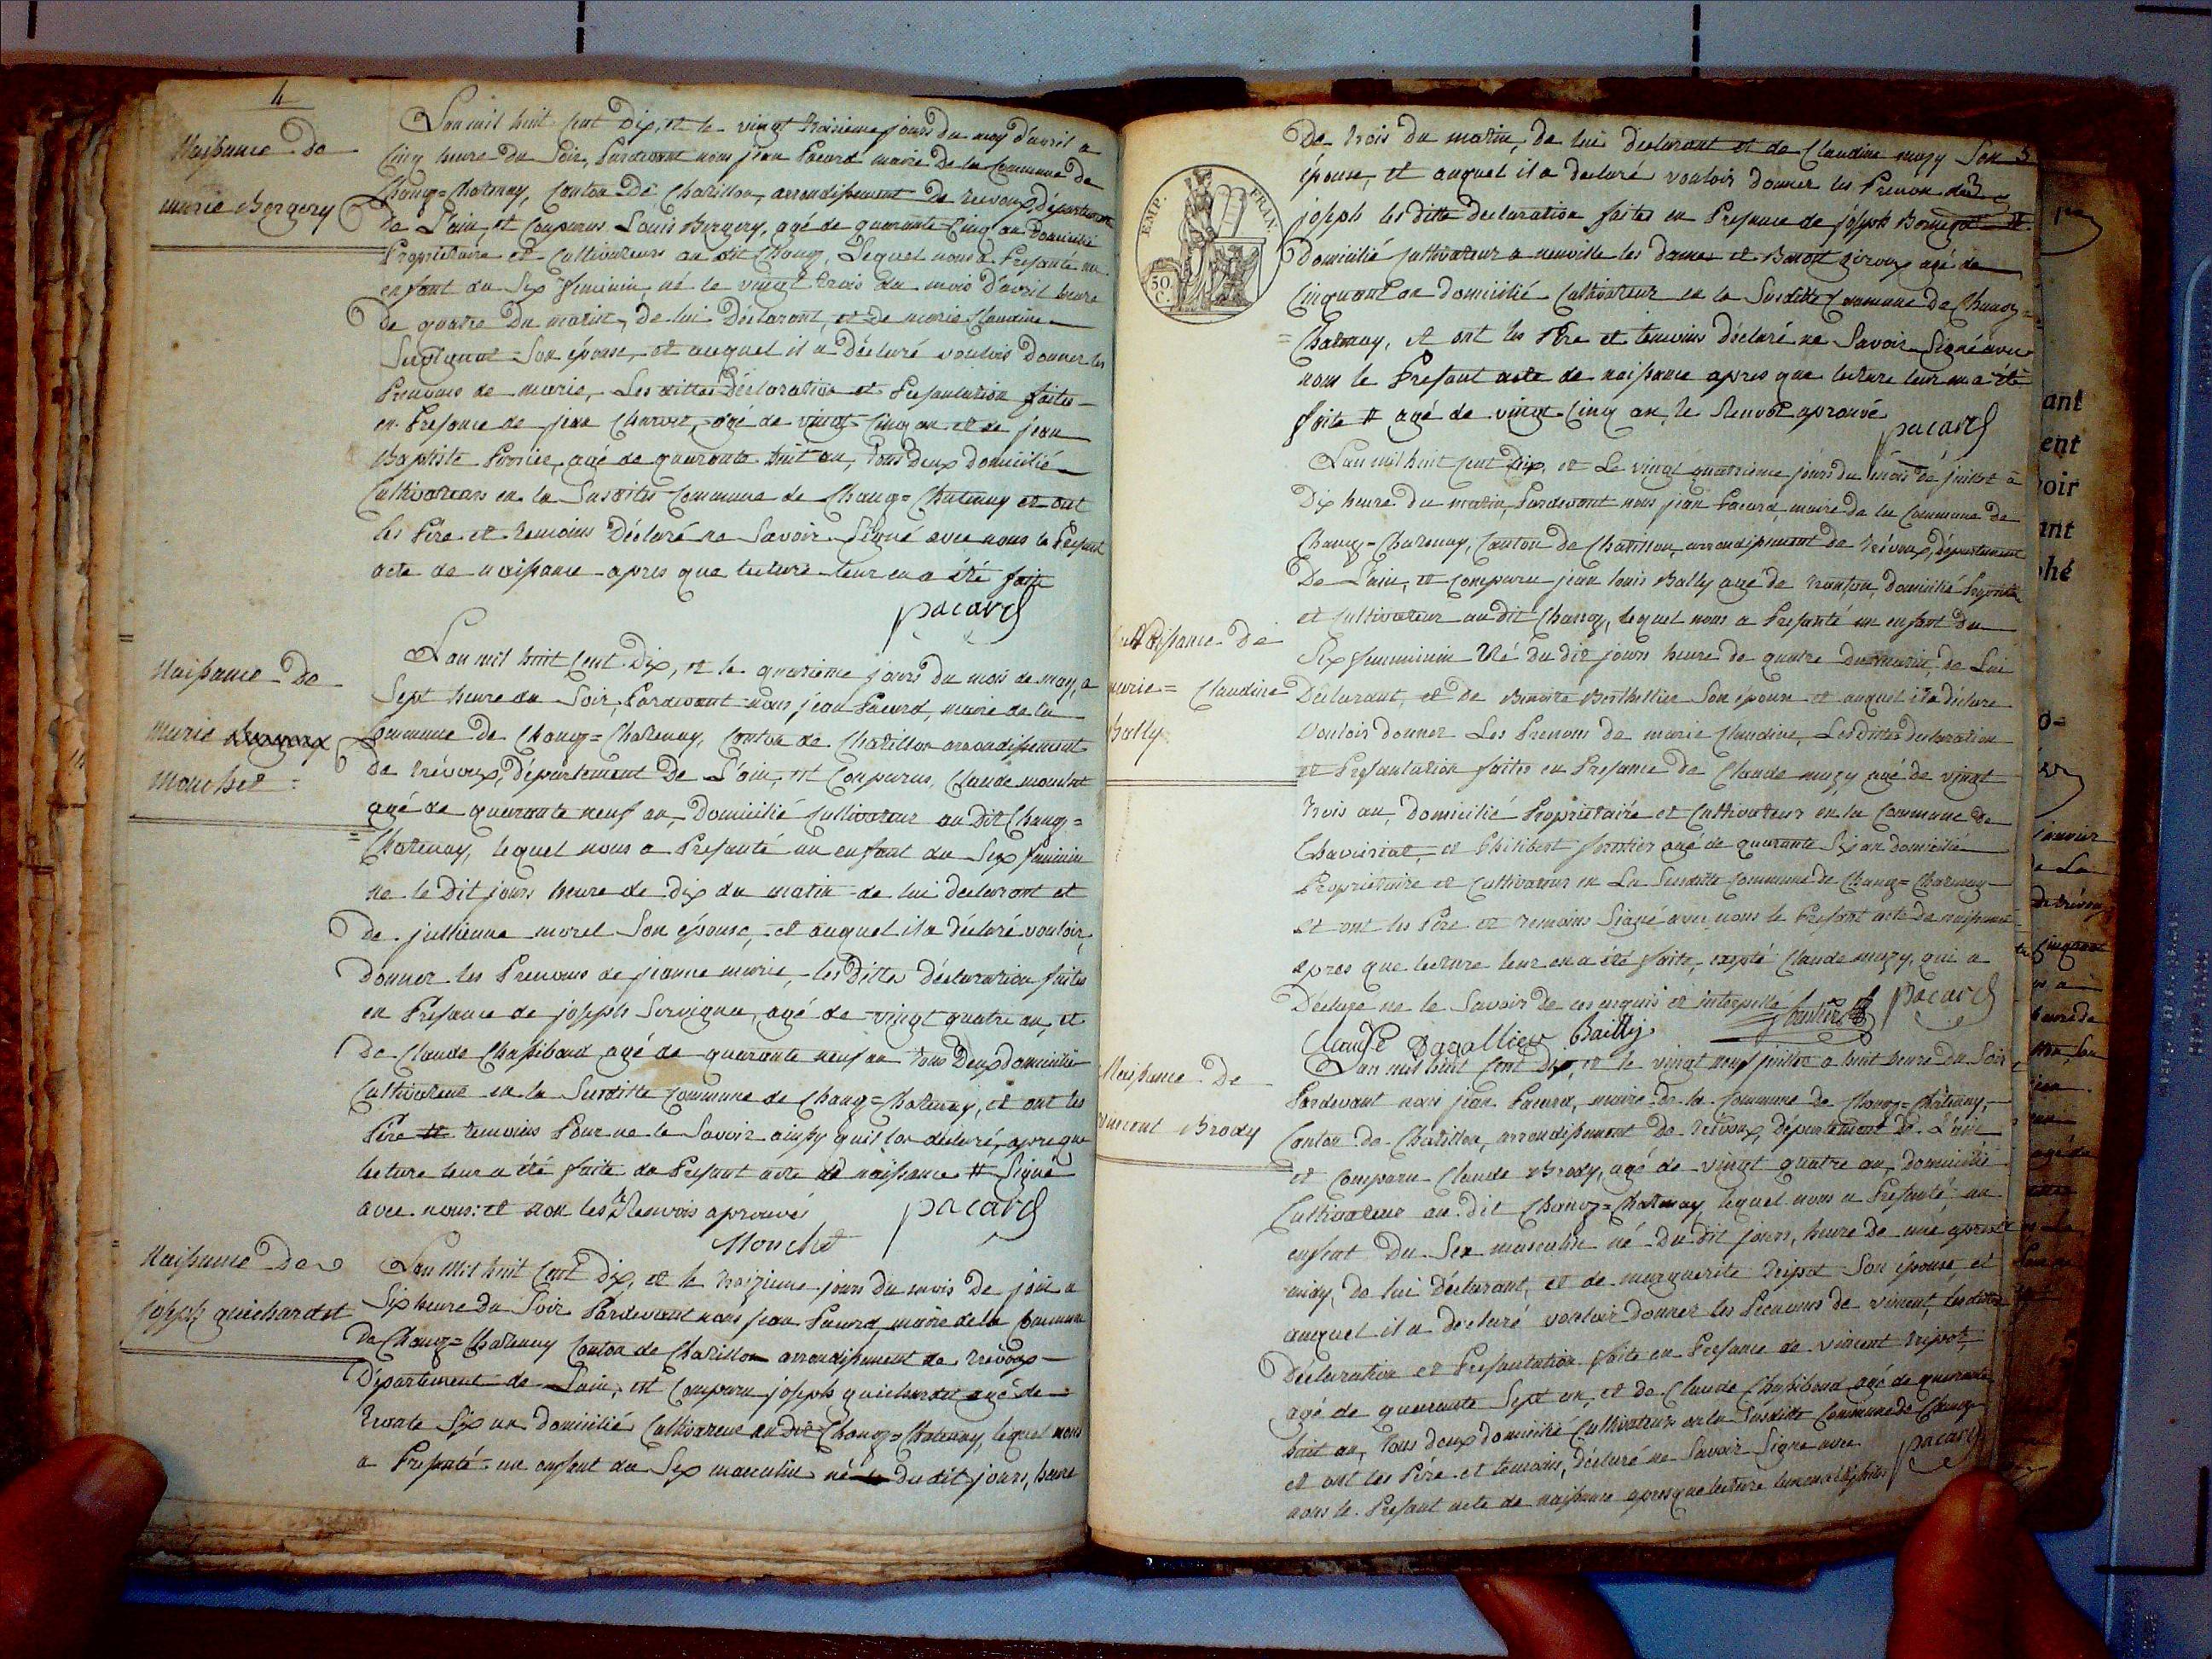 4
Naissance De
marie Bergery
L'an mil huit Cent Dix, et le vingt troisieme jours du moy d'avril a
Cinq heure du Soir, Pardevant nous jean Pacard maire de la Commune de
Chanoz=Chatenay, Canton De Chatillon, arrondissement De trevoux, département
De L'ain, et Comparus Louis Bergery, agé de quarante-Cinq an Domicilié
Propriétaire et Cultivateurs au dit Chanoz, Lequel nous a Presanté un
enfant du Sex feminin né le vingt trois du mois d'avril heure
De quatre du matin, de lui Déclarant, et de marie Claudine
Son épouse, et auquel il a Déclaré vouloir Donner les
Prenoms de marie, Les dittes Déclaration et Presantation faites
en Presance de jean agé de vingt-Cinq an et de jean
Baptiste agé de quarante huit an, tous deux domicilié
Cultivateurs en la Susditte Commune de Chanoz=Chatenay et ont
les Père et temoins Déclaré ne Savoir Signé avec nous le Presant
acte de naissance apres que lecture leur en a été faite
pacard
Naissance De
marie
Mouchet
L'an mil huit Cent Dix, et le quatrieme jours du mois de may, a
Sept heure du Soir, Pardevant nous, jean Pacard, maire de la
Commune de Chanoz=Chatenay, Canton de Chatillon arrondissement
De trévoux, Département De L'ain, et Comparus, Claude mouchet
agé de quarante neuf an, Domicilié Cultivateur au Dit Chanoz=
=Chatenay, lequel nous a Presanté un enfant du Sex feminin
né le Dit jours heure de Dix du matin de lui declarant et
De jullienne morel Son épouse, et auquel il a déclaré vouloir
donner les Prenoms de jeanne marie, les Dittes Déclaration faites
en Presance de joseph Servignea, agé de vingt quatre an, et
De Claude Chassiboud agé de quarante neuf an tous Deux domicilié
Cultivateur en la Susditte Commune de Chanoz=Chatenay, et ont les
Père et temoins Pour ne le Savoir ainsy quil lon déclaré, apre que
lecture leur a été faite du Presant acte de naissance # Signé
avec nous: et non les Renvois aprouvé
pacard
Mouchet
Naissance De
joseph guichardet
L'an Mil huit Cent Dix, et le troizieme jours du mois De juin a
Six heure Du Soir Pardevant nous jean Pacard, maire de la Commune
De Chanoz=Chatenay Canton de Chatillon arrondissement de trévoux
Département de Lain, et Comparu joseph guichardet agé de
trente Six an domicilié Cultivateur au Dit Chanoz=Chatenay, lequel nous
a Presanté un enfant du Sex masculin né du dit jours, heure
5
EMP. FRAN.
50. C.
De trois du matin, de lui declarant et de Claudine muzy Son
épouse, et auquel il a declaré vouloir donner les Prenom de
joseph les ditte declaration faites en Presance de joseph #
Domicilié Cultivateur a neuville les dames et Benoit giroux agé de
Cinquante an domicilié Cultivateur en la Susditte Commune De Chanoz=
=Chatenay, et ont les Père et temoins déclaré ne Savoir Signé avec
nous le Presant acte de naissance apres que lecture leur en a été
faite # agé de vingt-Cinq an, le Renvoi aprouvé
pacard
naissance De
marie=Claudine
Bally
L'an mil huit Cent Dix, et Le vingt quatrieme jours du mois de juillet a
Dix heure du matin, Pardevant nous jean Pacard, maire de la Commune De
Chanoz=Chatenay, Canton De Chatillon, arrondissement de trévoux, département
De L'ain, et Comparu jean louis Bally agé de trante an, domicilié
et Cultivateur au dit Chanoz, lequel nous a Presanté un enfant du
Sex femminin Né du dit jours heure de quatre du matin, de Lui
Déclarant, et de Benoite Berthellier Son épouse et auquel il a déclaré
Vouloir donner Les Prenoms de marie Claudine, Les Dittes declaration
et Presantation faites en Presance de Claude muzy agé de vingt
trois an, domicilié Propriétaire et Cultivateur en la Commune de
Chaveiriat, et Philibert agé de quarante Six an domicilié
Propriétaire et Cultivateur en La Susditte Commune de Chanoz=Chatenay
et ont les Père et temoins Signé avec nous le Presant acte de naissance
apres que lecture leur en a été faite, exepté Claude muzy, qui a
Déclaré ne le Savoir de ces enquis et interpellé
pacard
Claude Dagallier Bailly
Naissance De
vincent Brody
L'an mil huit Cent Dix, et le vingt neuf juillet a huit heure du Soir
Pardevant nous jean Pacard, maire de la Commune De Chanoz=Chatenay,
Canton De Chatillon, arrondissement De trévoux, Département De L'ain
et Comparu Claude Brody, agé de vingt quatre an, domicilié
Cultivateur au dit Chanoz=Chatenay lequel nous a Presanté un
enfant Du Sex masculin né Du dit jours, heure De une apres
midy, De lui Déclarant, et de marguerite tripot Son épouse et
auquel il a declaré vouloir donner les Prenoms de vincent, les dittes
Déclaration et Presantation faite en Presance de vincent tripot,
agé de quarante Sept an, et de Claude Chassiboud agé de quarante
huit an, tous deux domicilié Cultivateur en la Susditte Commune de Chanoz
et ont les Père et temoins, déclaré ne Savoir Signe avec
nous le Presant acte de naissance apres que lecture leur en a été faite
pacard
ant
ent
oir
ant
hé